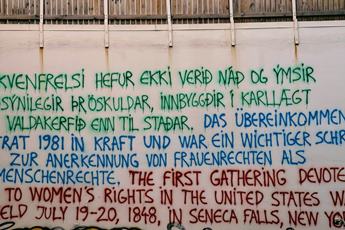 KVENFRELSI HEFUR EKKI VERIÐ NÁÐ OG ÝMSIR
SÝNILEGIR ÞRÖSKULDAR, INNBYGGÐIR Í KARLLÆGT
VALDAKERFIÐ ENN TIL STAÐAR. DAS ÜBEREINKOMMEN
TRAT 1981 IN KRAFT UND WAR EIN WICHTIGER SCHR
ZUR ANERKENNUNG VON FRAUENRECHTEN ALS
MENSCHENRECHTE. THE FIRST GATHERING DEVOTE
TO WOMEN'S RIGHTS IN THE UNITED STATES W
ELD JULY 19-20, 1848, IN SENECA FALLS, NEW YO